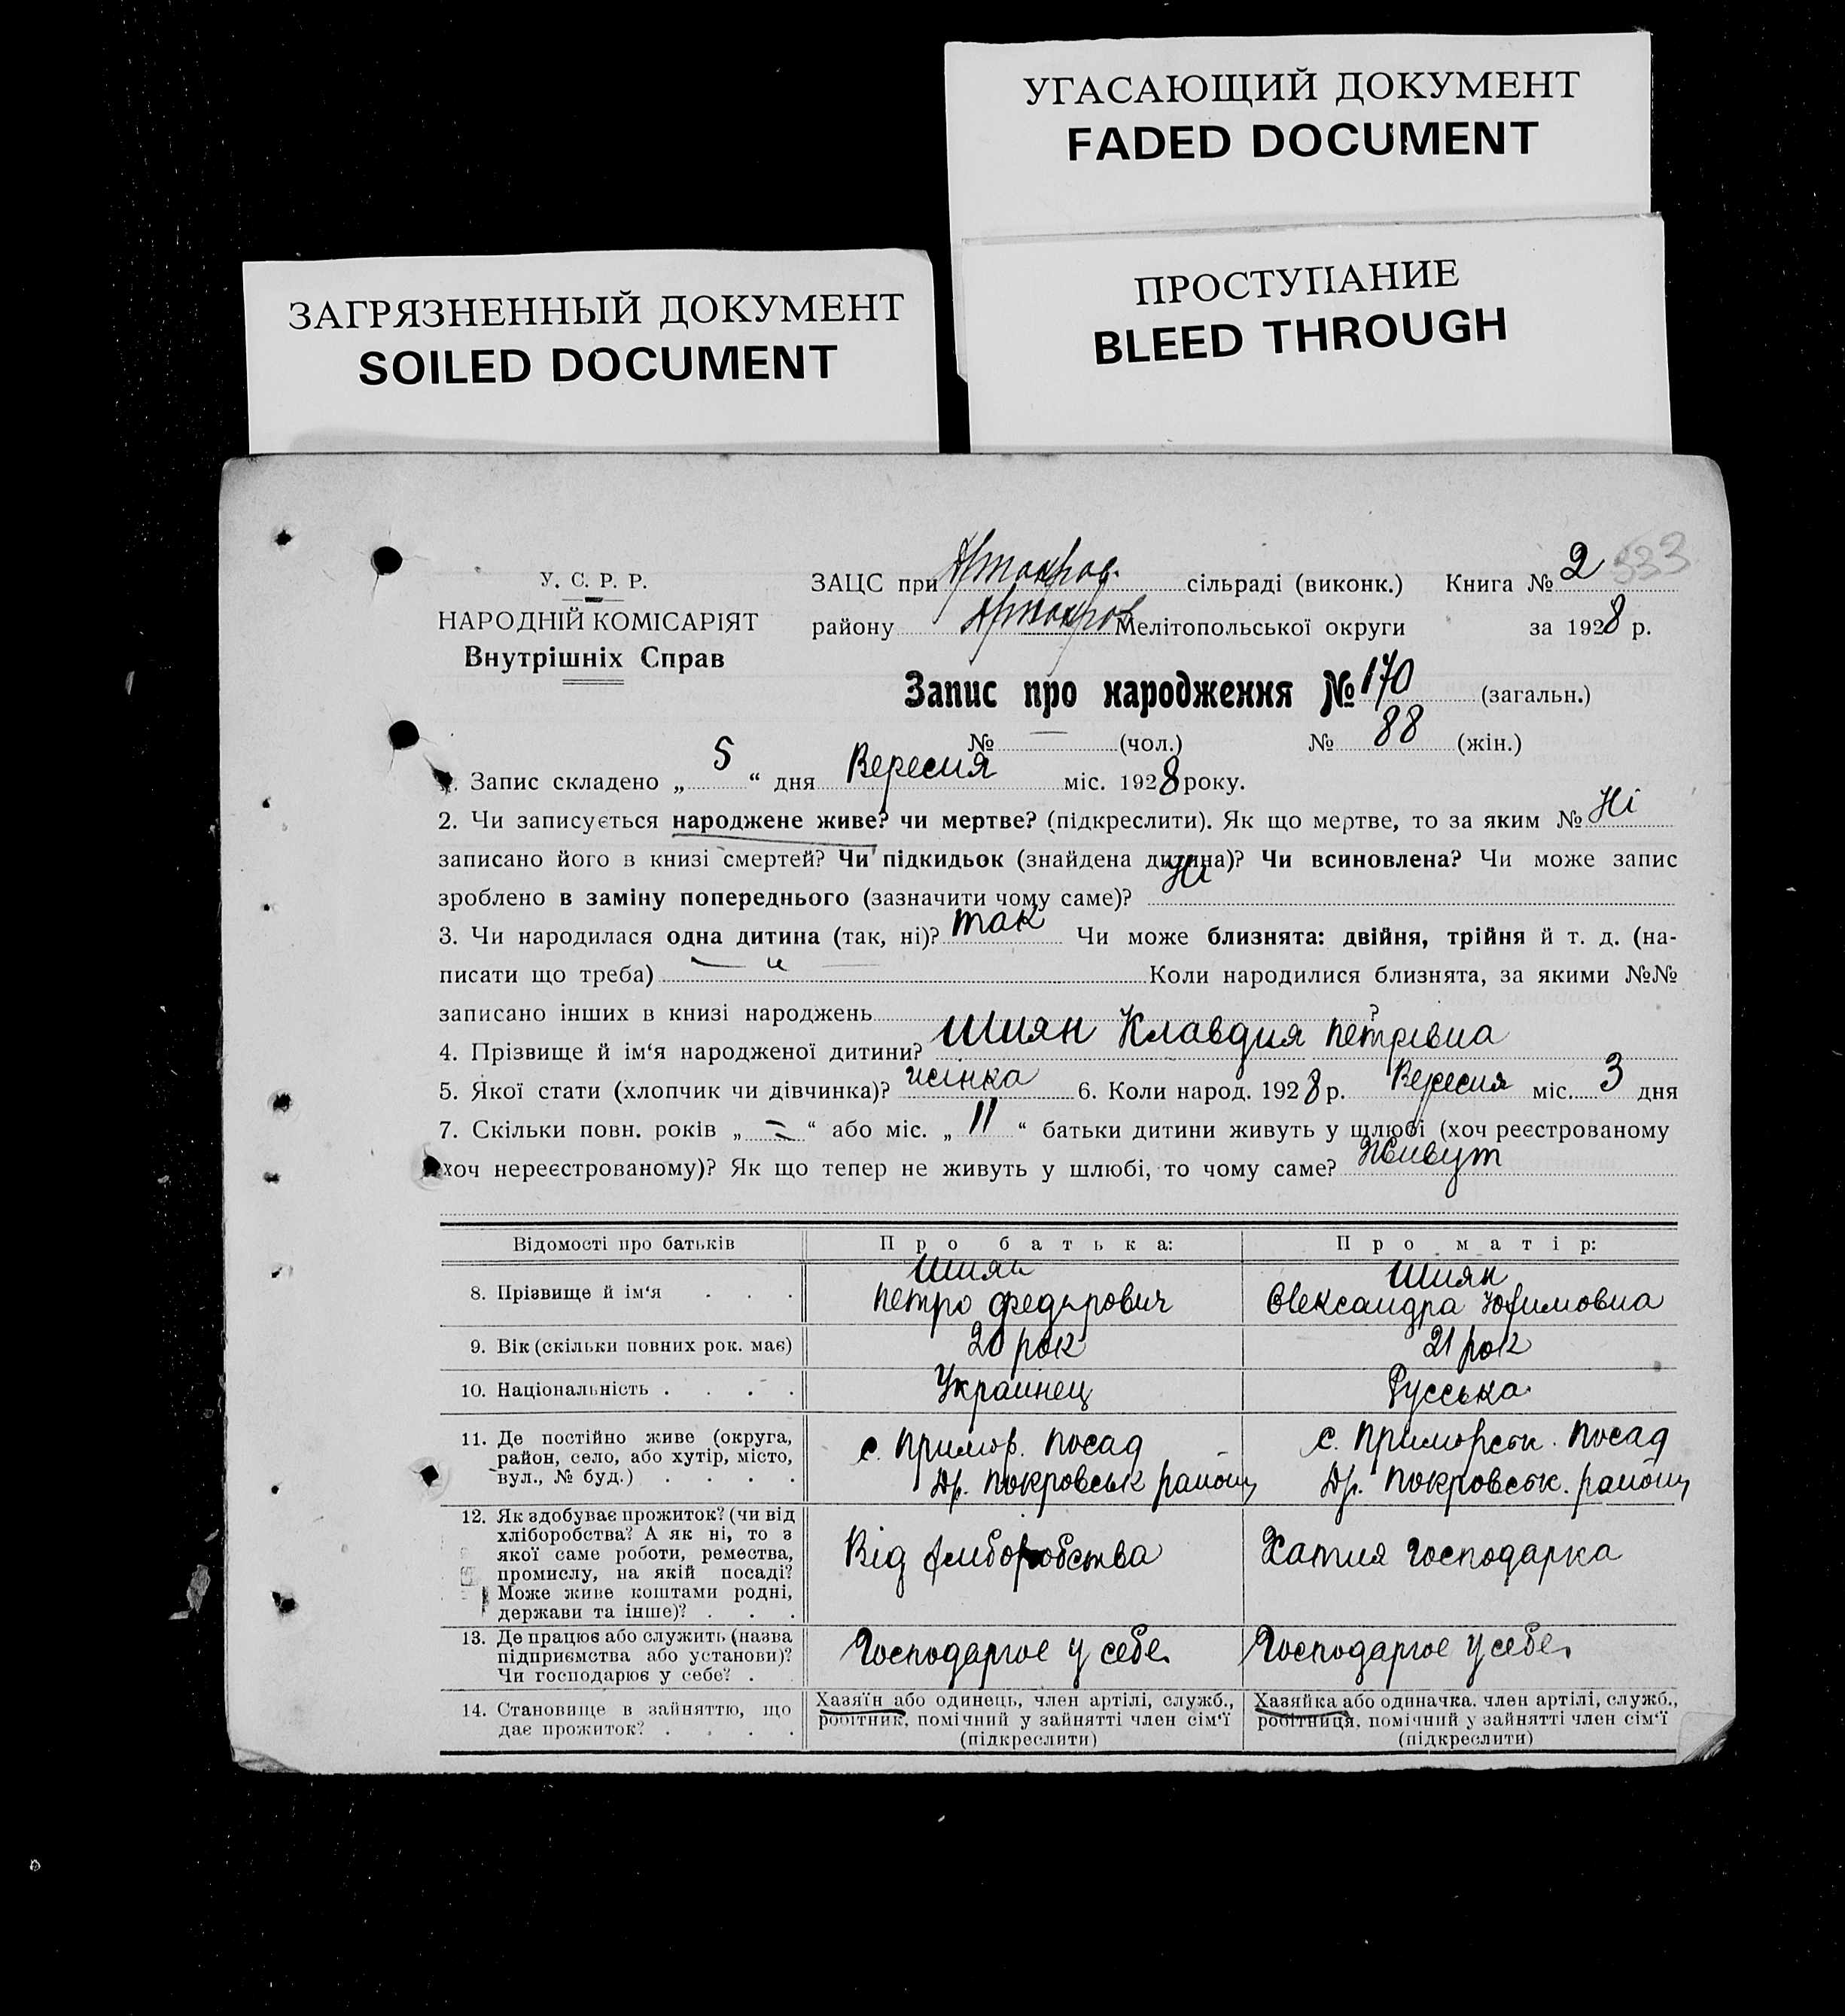 УГАСАЮЩИЙ ДОКУМЕНТ
FADED DOCUMENT
ПРОСТУПАНИЕ
BLEED THROUGH
ЗАГРЯЗНЕННЫЙ ДОКУМЕНТ
SOILED DOCUMENT
У. С. Р. Р.
НАРОДНІЙ КОМІСАРІЯТ
Внутрішніх Справ
ЗАЦС при сільраді (виконк.) Книга № 2 333
району Мелітопольської округи за 1928 р.
Запис про народження № 170 (загальн.)
№ — (чол.) № 88 (жін.)
1. Запис складено „ 5 “ дня Вересня міс. 1928 року.
2. Чи записується народжене живе? чи мертве? (підкреслити). Як що мертве, то за яким № Ні
записано його в книзі смертей? Чи підкидьок (знайдена дитина)? Чи всиновлена? Чи може запис
зроблено в заміну попереднього (зазначити чому саме)? Ні
3. Чи народилася одна дитина (так, ні)? так Чи може близнята: двійня, трійня й т. д. (на-
писати що треба) Коли народилися близнята, за якими №№
записано інших в книзі народжень ?
4. Прізвище й ім‘я народженої дитини? Шиян Клавдия Петрівна
5. Якої стати (хлопчик чи дівчинка)? жінка 6. Коли народ. 1928 р. Вересня міс. 3 дня
7. Скільки повн. років „ “ або міс. „ 11 “ батьки дитини живуть у шлюбі (хоч реєстрованому
хоч нереєстрованому)? Як що тепер не живуть у шлюбі, то чому саме? Живут
Відомості про батьків Про батька: Про матір:
8. Прізвище й ім‘я Шиян Петро Федорович Шиян Олександра Юхимовна
9. Вік (скільки повних рок. має) 20 рок 21 рок
10. Національність Украинец Русська
11. Де постійно живе (округа,
район, село, або хутір, місто,
вул., № буд.)
с. Примор. Посад
Др. Покровськ району
с. Приморськ. Посад
Др. Покровськ. району
12. Як здобуває прожиток? (чи від
хліборобства? А як ні, то з
якої саме роботи, ремества,
промислу, на якій посаді?
Може живе коштами родні,
держави та інше)?
Від хліборобства
Хатня господарка
13. Де працює або служить (назва
підприємства або установи)?
Чи господарює у себе?
Господарює у себе
Господарює у себе
14. Становище в зайняттю, що
дає прожиток?
Хазяїн або одинець, член артілі, служб.,
робітник, помічний у зайнятті член сім‘ї
(підкреслити)
Хазяйка або одиначка, член артілі, служб.,
робітниця, помічний у зайнятті член сім‘ї
(підкреслити)